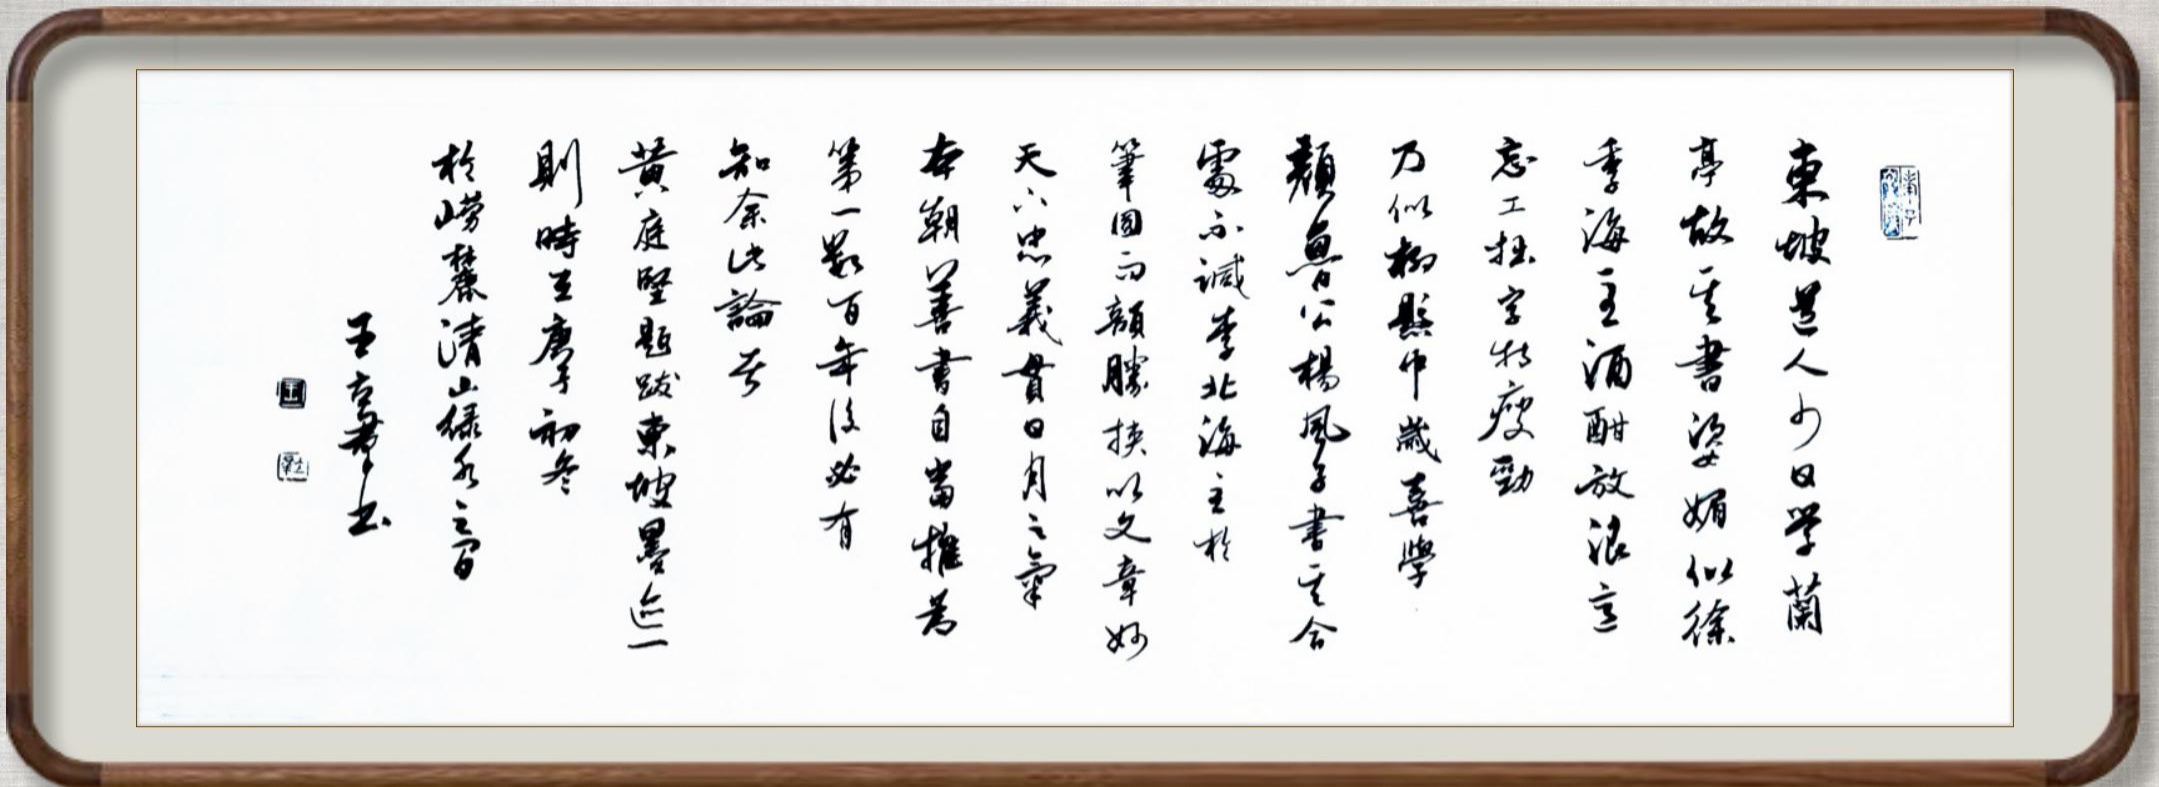 東坡道人少日學蘭
亭故其書姿媚似徐
季海至酒酣放浪意
忘工拙字特瘦勁
乃似柳懸中歲喜學
顏魯公楊風子書其合
處不減李北海至於
筆圓而韻勝挾以文章妙
天下忠義貫日月之氣
本朝善書自當推為
第一數百年後必有
知余此論者
黃庭堅題跋東坡墨迹一
則時在庚子初冬
於嶗麓清山綠水之間
書